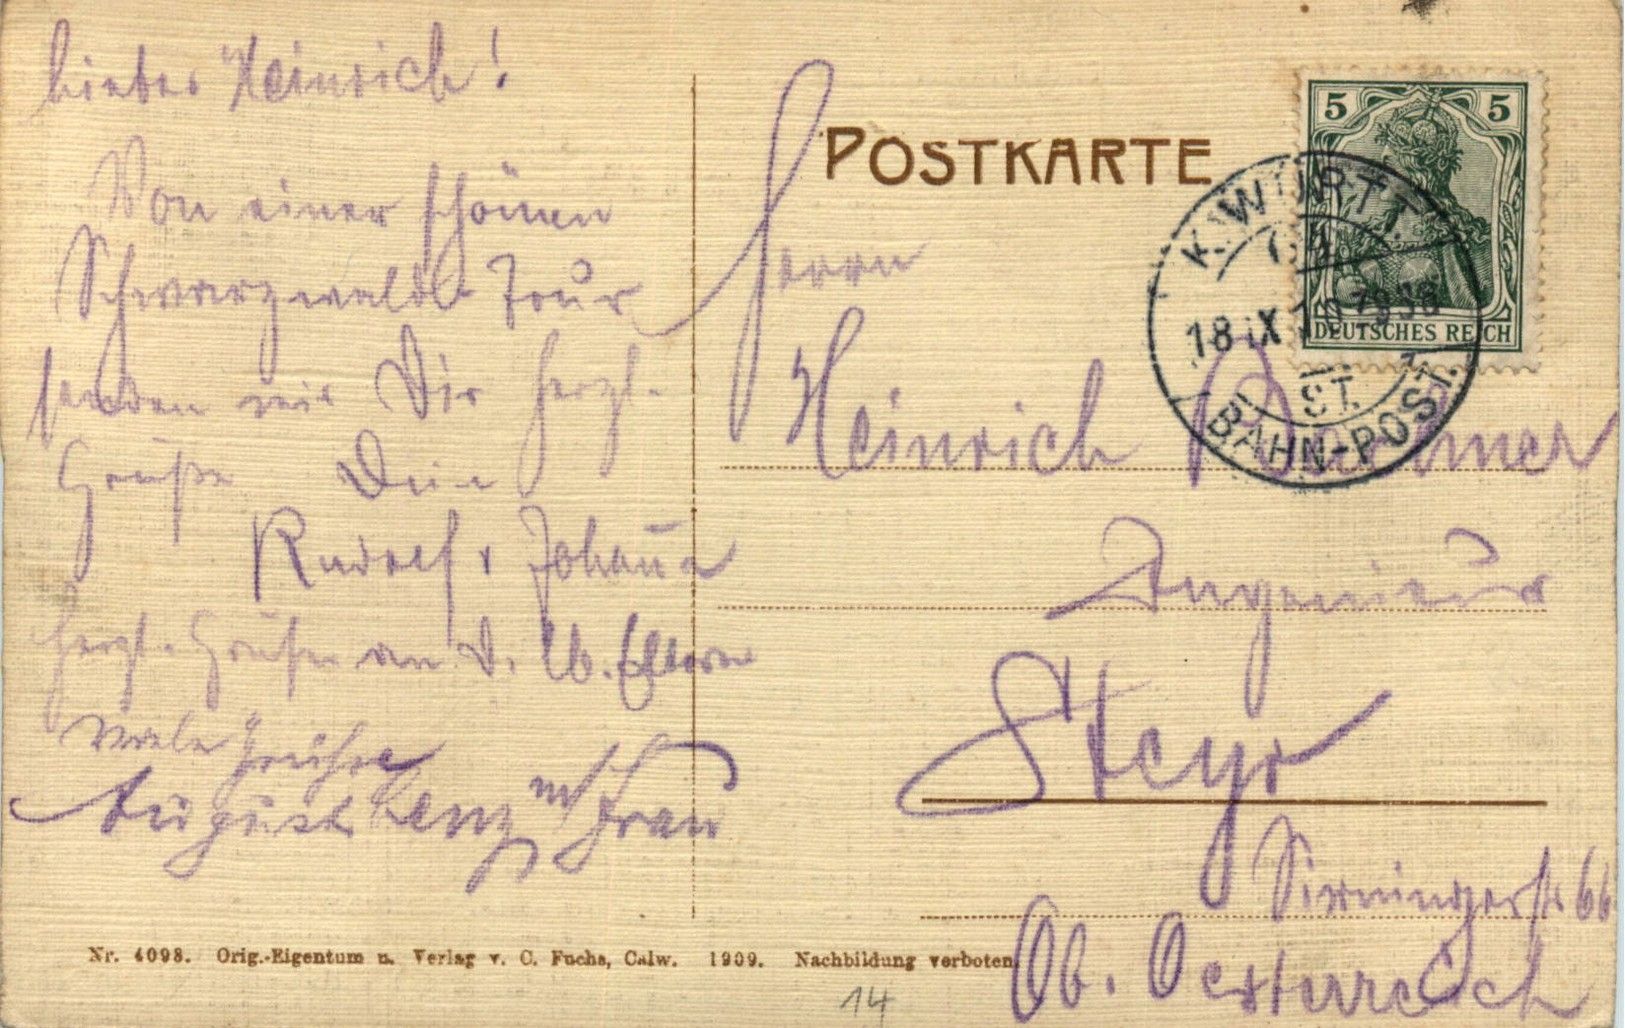 Lieber Heinrich!
Von einer schönen
Schwarzwald-Tour
senden wir Dir herzl.
Grüße Dein
Rudolf & Johanna
herzl. Grüße an d. lb. Eltern
Viele Grüsse
August Lenz m/ Frau
POSTKARTE
5 5
DEUTSCHES REICH
K. WÜRTT.
18 IX
ST.
BAHN-POST.
Herrn
Heinrich
Ingenieur
Steyr
Sierningerstr 66
Ob. Oesterreich
Nr. 4098. Orig.-Eigentum u. Verlag v. C. Fuchs, Calw. 1909. Nachbildung verboten.
14